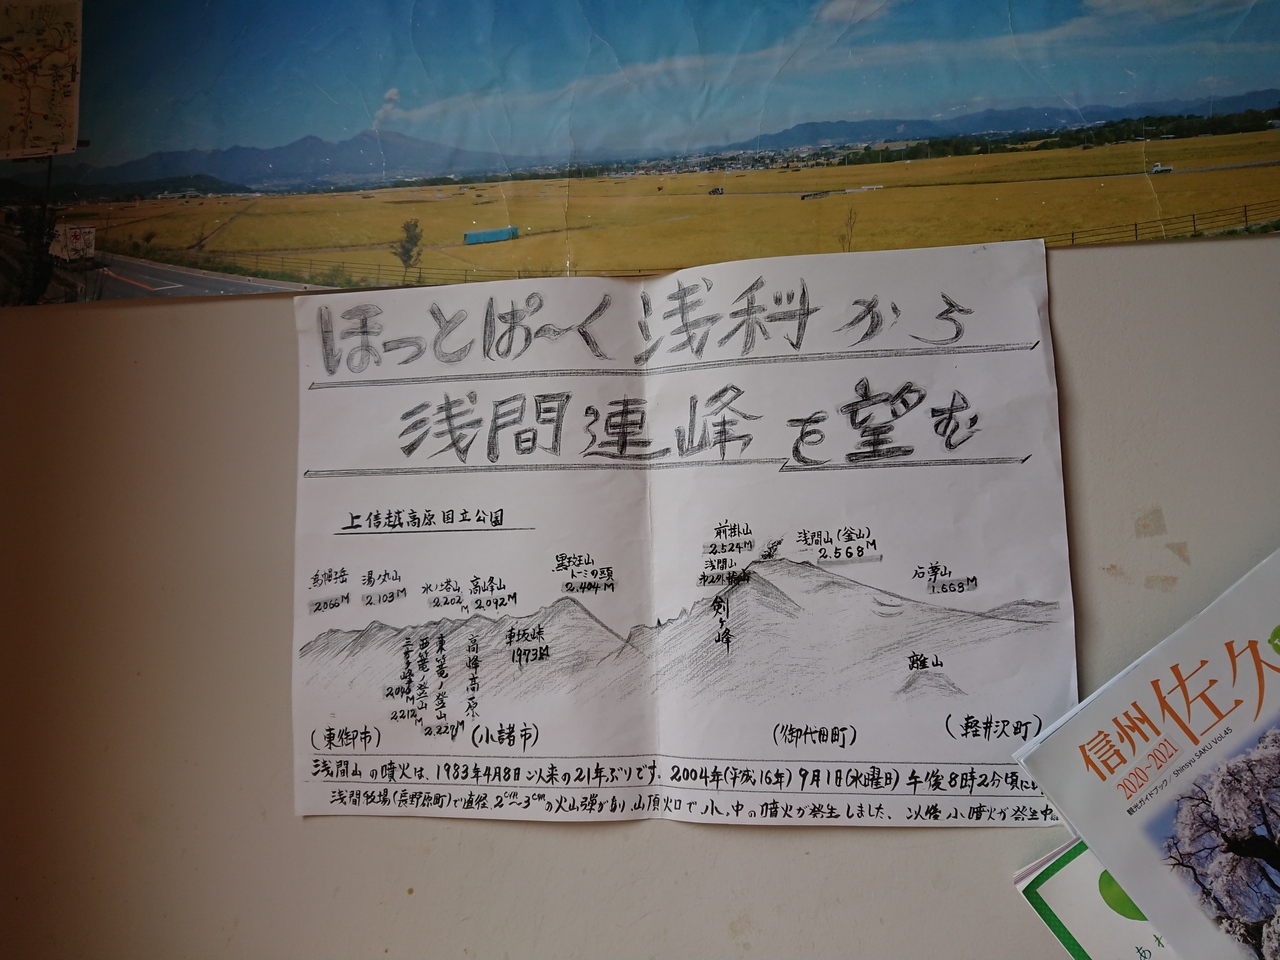 ほっとぱ〜く浅科から
浅間連峰を望む
上信越高原国立公園
烏帽子岳
2066M
湯ノ丸山
2.103M
水ノ塔山
2.202M
高峰山
2.092M
黒斑山
トーミの頭
2.404M
前掛山
2.524M
浅間山
剣ヶ峰
浅間山(釜山)
2.568M
石尊山
1.668M
2.212M
西篭ノ登山
東篭ノ登山
2.227M
高峰高原
車坂峠
1973M
離山
(東御市)
(小諸市)
(御代田町)
(軽井沢町)
浅間山の噴火は、1983年4月8日以来の21年ぶりです。2004年(平成16年)9月1日(水曜日)午後8時2分頃に
浅間牧場(長野原町)で直径2cm〜3cmの火山弾が有り、山頂火口で小、中の噴火が発生しました、以後小噴火が発生中
信州佐久
2020-2021
観光ガイドブック/Shinsyu SAKU Vol.45